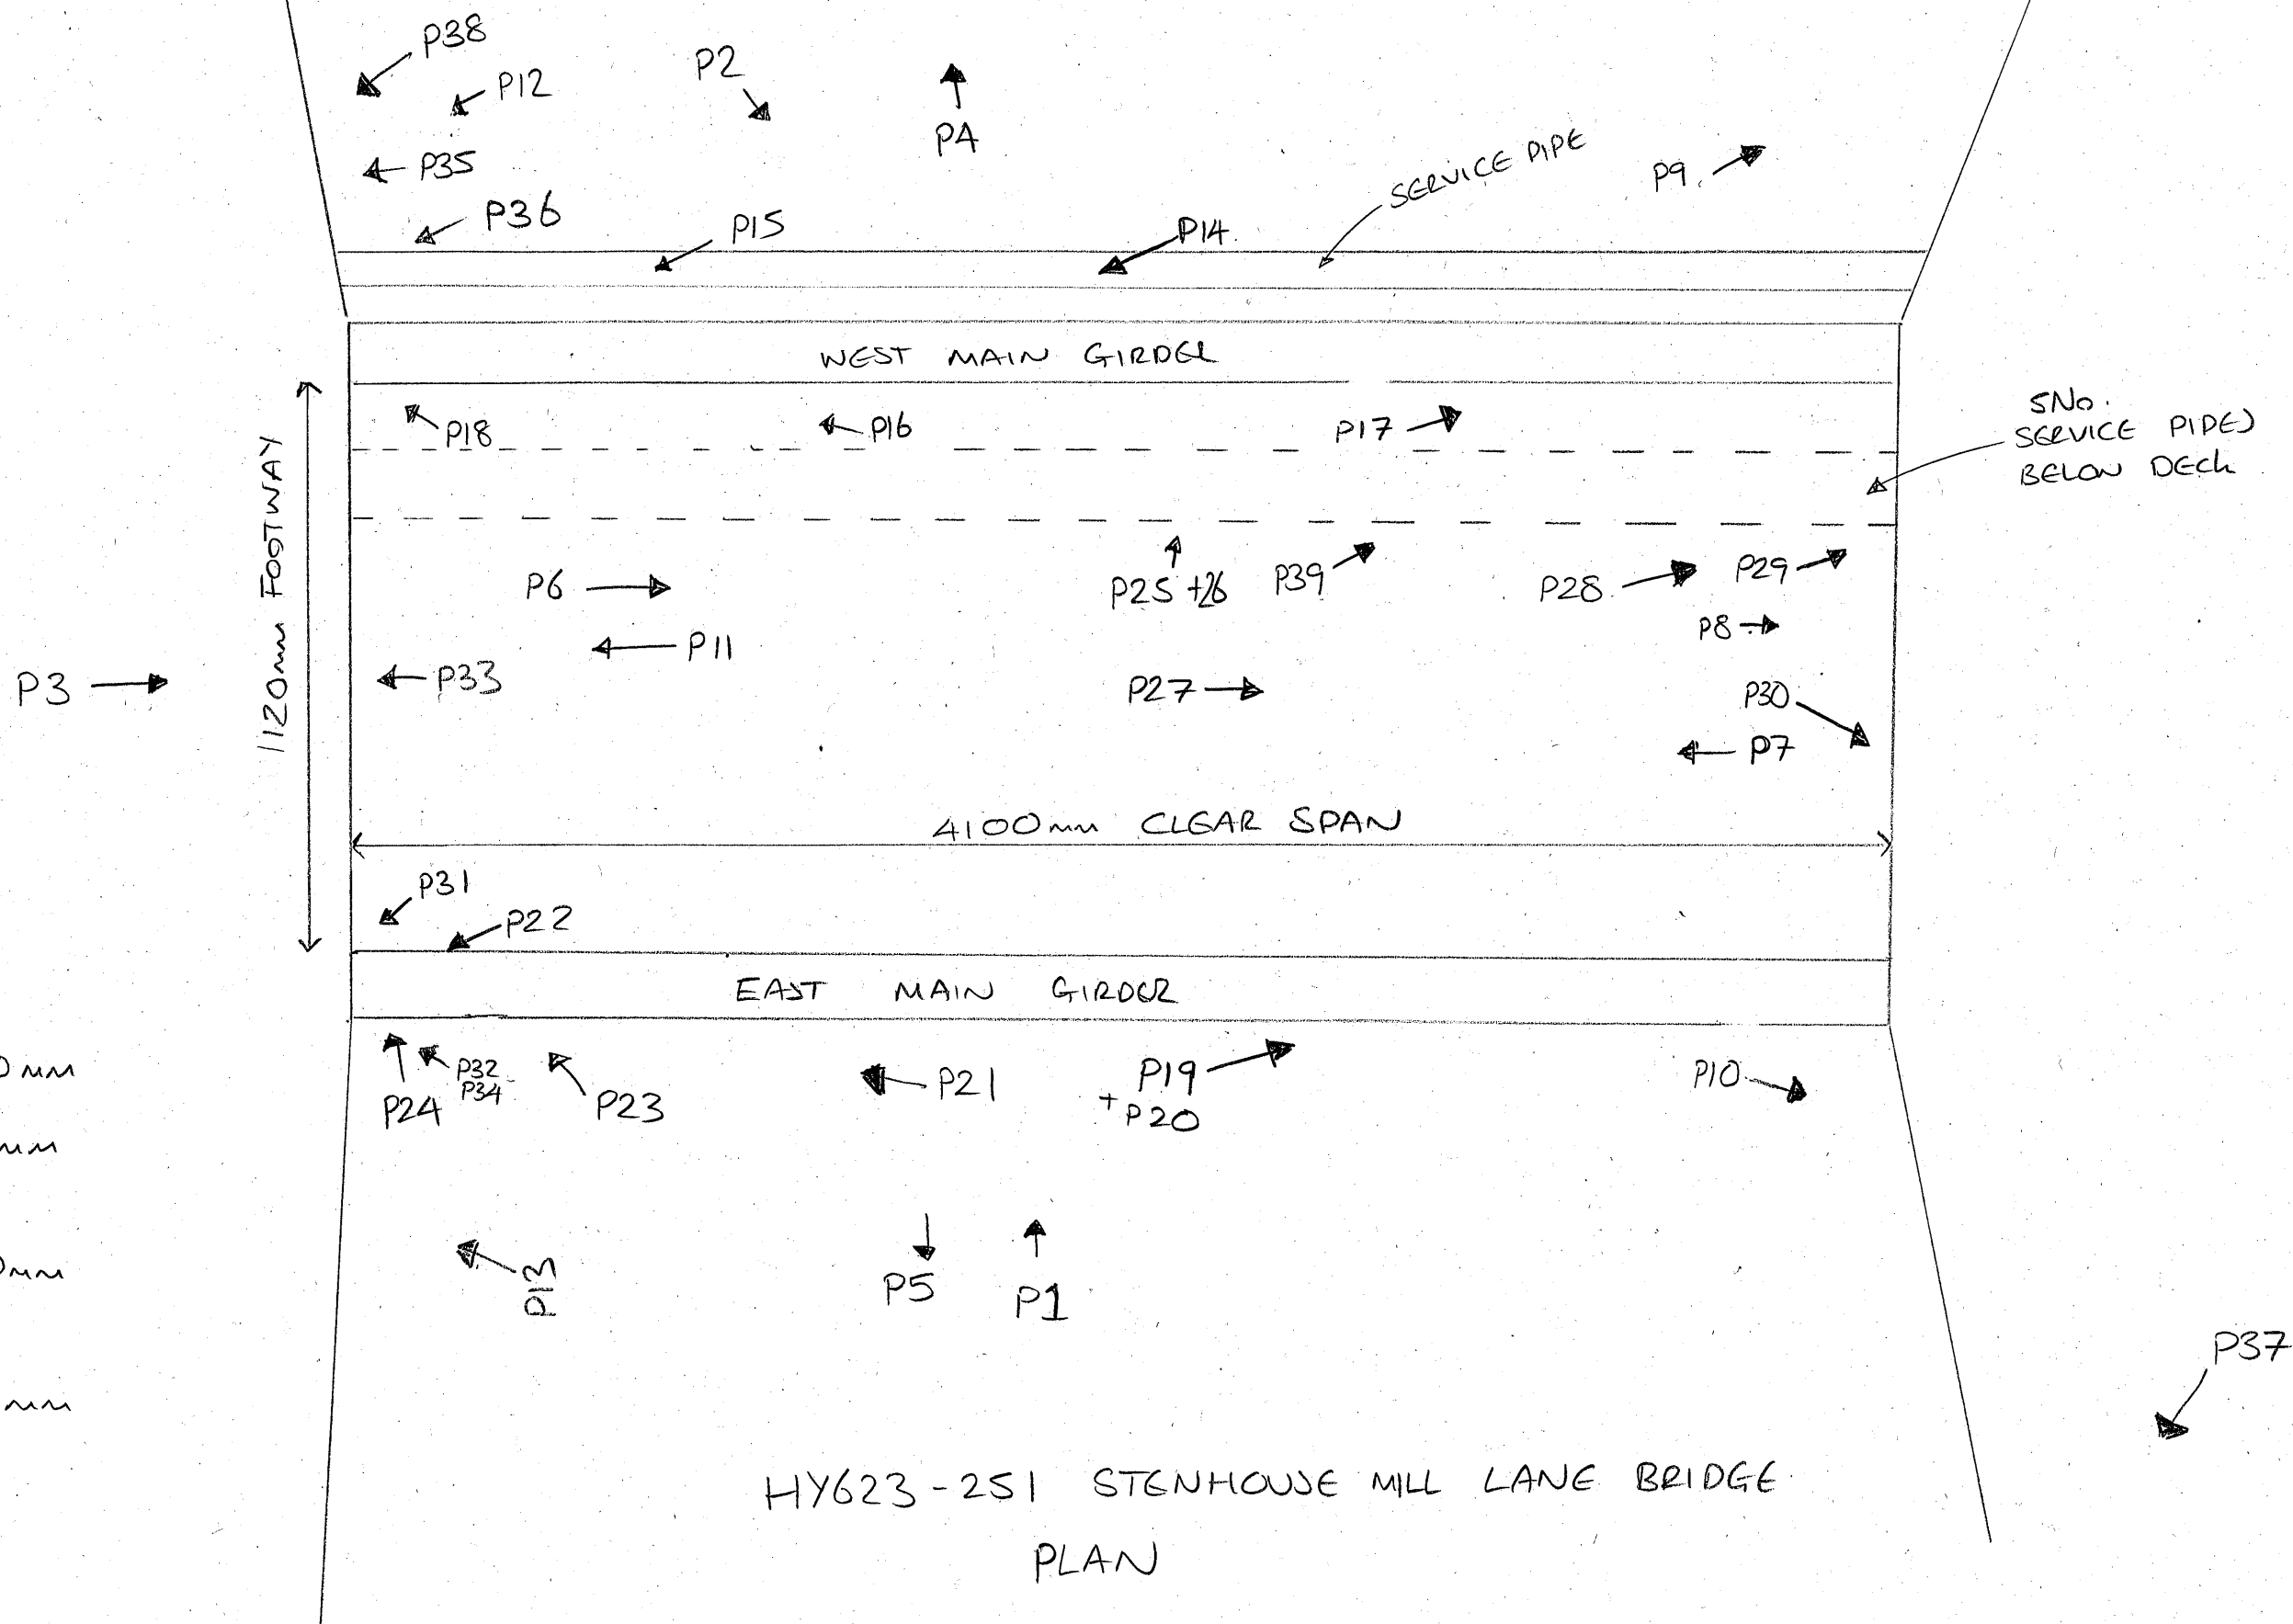 P38
P12
P2
P4
P35
SERVICE PIPE
P9
P36
P15
P14
WEST MAIN GIRDER
P18
P16
P17
5No.
SERVICE PIPES
BELOW DECK
1120mm FOOTWAY
P6
P25 +26
P39
P28
P29
P8
P11
P3
P33
P27
P30
P7
4100mm CLEAR SPAN
P31
P22
EAST MAIN GIRDER
0mm
P32
P34
P24
P23
P21
P19
+ P20
P10
mm
0mm
P13
P5
P1
P37
mm
HY623-251 STENHOUSE MILL LANE BRIDGE
PLAN